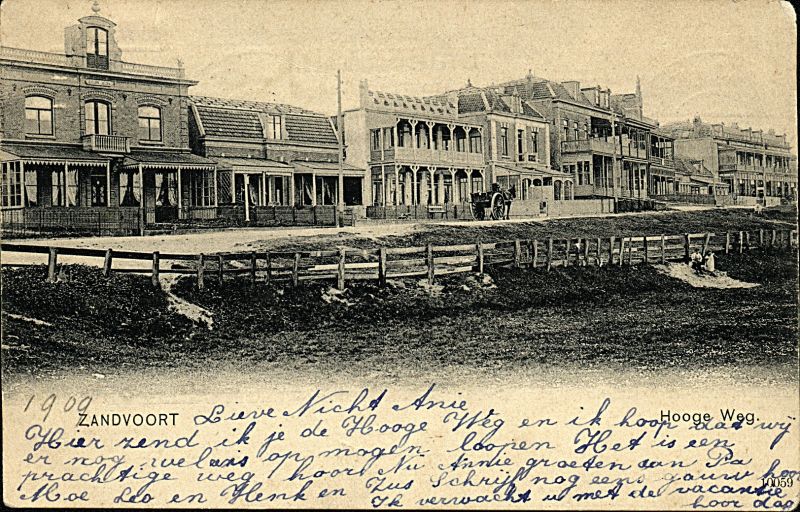 1909
ZANDVOORT Lieve Nicht Annie Hooge Weg.
Hier zend ik je de Hooge Weg en ik hoop dat wij
er nog welens op mogen loopen Het is een
prachtige weg hoor Nu Annie groeten van Pa
Moe Leo en Henk en Zus Schrijf nog eens gauw hoor
Ik verwacht u met de vacantie
hoor dag
10059